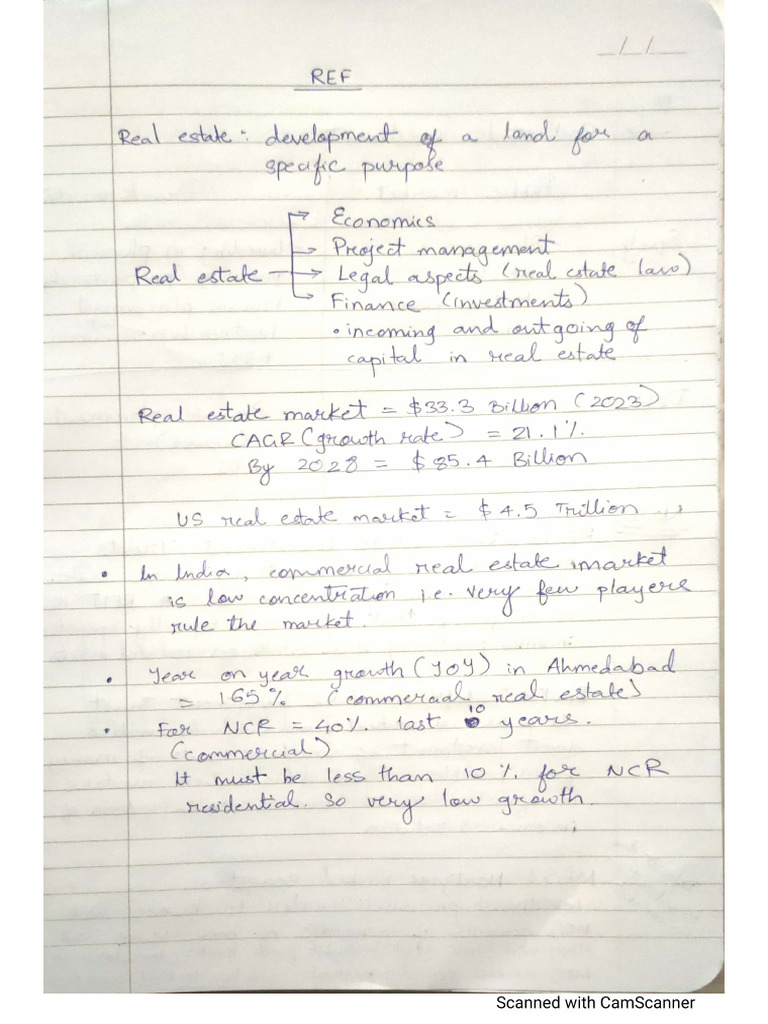 __/__/__
REF
Real estate: development of a land for a
specific purpose
Economics
Project management
Real estate → Legal aspects (real estate law)
Finance (investments)
• incoming and outgoing of
capital in real estate
Real estate market = $33.3 Billion (2023)
CAGR (growth rate) = 21.1%.
By 2028 = $85.4 Billion
US real estate market = $4.5 Trillion
• In India, commercial real estate market
is low concentration i.e. very few players
rule the market.
• Year on year growth (YOY) in Ahmedabad
= 165% (commercial real estate)
• For NCR = 40%. last 10 years.
(commercial)
It must be less than 10%. for NCR
residential. So very low growth.
Scanned with CamScanner